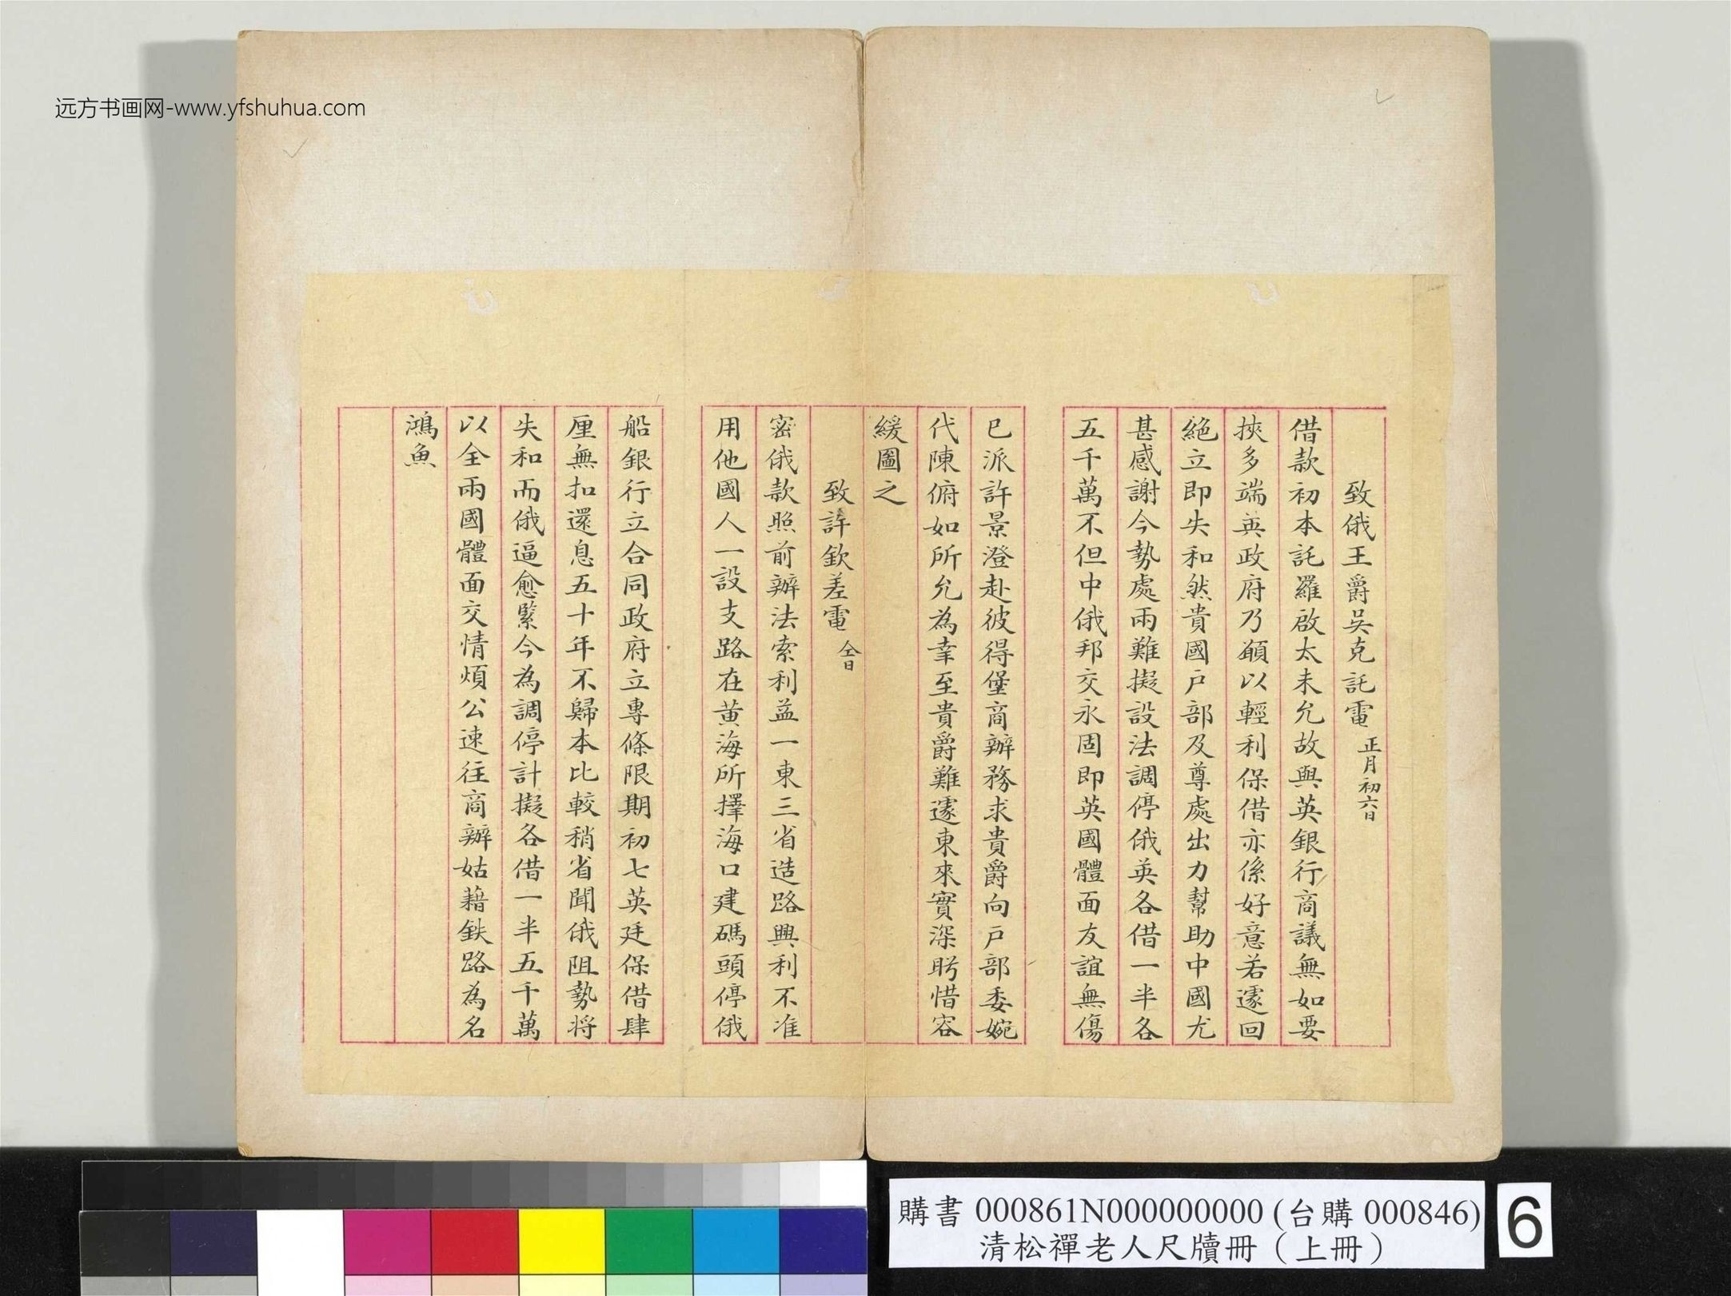 远方书画网-www.yfshuhua.com
致俄王爵吳克託電 正月初六日
借款初本託羅啟太未允故與英銀行商議無如要
挾多端英政府乃願以輕利保借亦係好意若遽回
絕立即失和然貴國戶部及尊處出力幫助中國尤
甚感謝今勢處兩難擬設法調停俄英各借一半各
五千萬不但中俄邦交永固即英國體面友誼無傷
已派許景澄赴彼得堡商辦務求貴爵向戶部委婉
代陳俯如所允為幸至貴爵難遽東來實深盼惜容
緩圖之
致許欽差電 仝日
密俄款照前辦法索利益一東三省造路興利不准
用他國人一設支路在黃海所擇海口建碼頭停俄
船銀行立合同政府立專條限期初七英廷保借肆
厘無扣還息五十年不歸本比較稍省聞俄阻勢將
失和而俄逼愈緊今為調停計擬各借一半五千萬
以全兩國體面交情煩公速往商辦姑藉鉄路為名
鴻魚
購書 000861N000000000 (台購 000846)
清松禪老人尺牘冊（上冊）
6